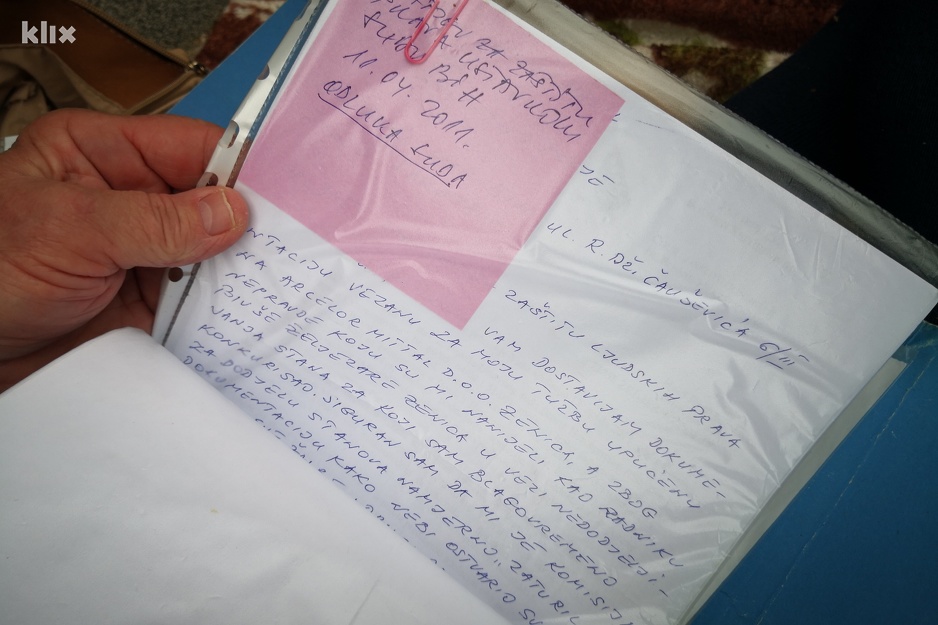 klix
ZA ZAŠTITU
USTAVNOM
SUDU BIH
11.04.2011.
ODLUKA SUDA
JE
UL. R. DŽ. ČAUŠEVIĆA 6/III
ZAŠTITU LJUDSKIH PRAVA
VAM DOSTAVLJAM DOKUME-
NTACIJU VEZANU ZA MOJU TUŽBU UPUĆENU
NA ARCELOR MITTAL D.O.O. ZENICA, A ZBOG
NEPRAVDE KOJU SU MI NANIJELI KAO RADNIKU
BIVŠE ŽELJEZARE ZENICA U VEZI NEDODJELJI-
VANJA STANA ZA KOJI SAM BLAGOVREMENO
KONKURISAO. SIGURAN SAM DA MI JE KOMISIJA
ZA DODJELU STANOVA NAMJERNO „ZATURIL
DOKUMENTACIJU KAKO NEBI OSTVARIO SV